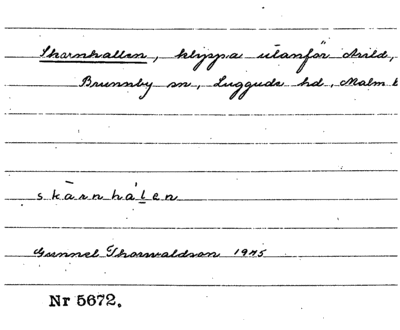 Skarnhallen, klyppa utanför Arild,
Brunnby sn, Luggude hd, Malm
skārnhál̲en
Gunnel Thorwaldson 1945
Nr 5672.